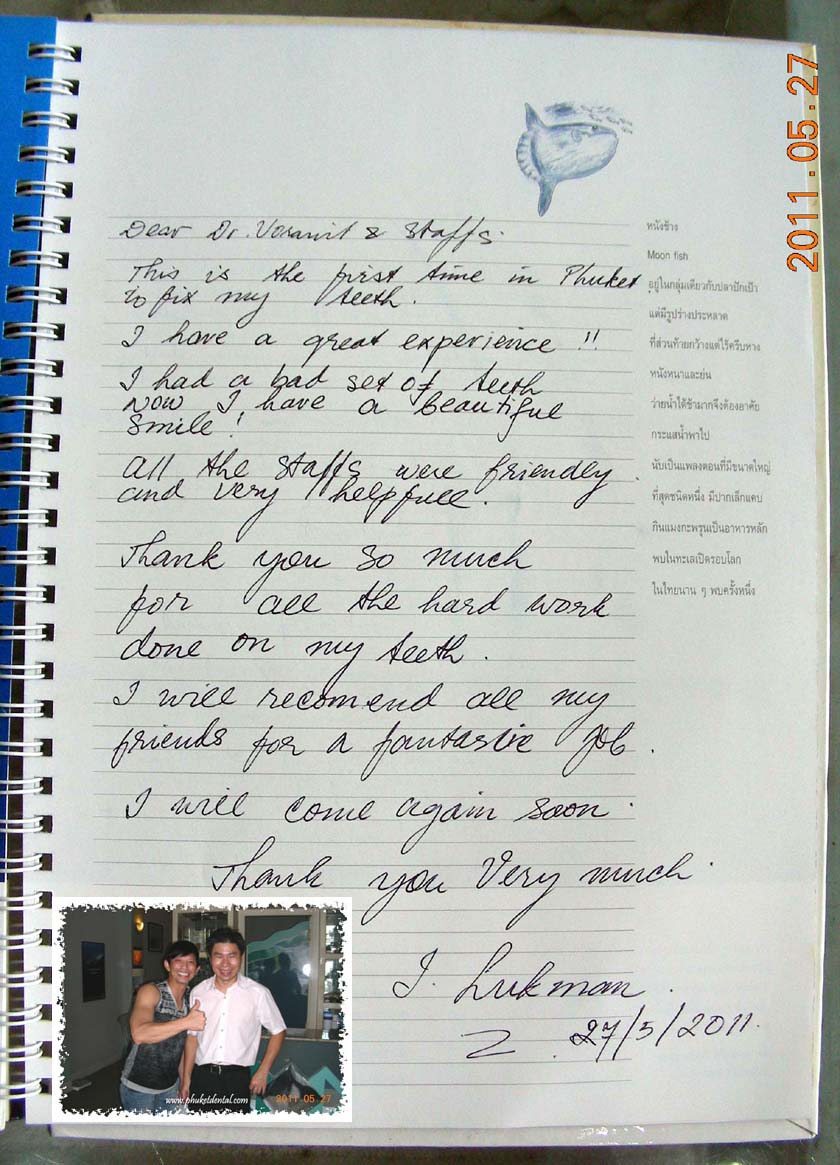 2011.05.27
Dear Dr. Voranit & Staffs.
This is the first time in Phuket
to fix my teeth.
I have a great experience !!
I had a bad set of teeth
Now I have a beautiful
Smile!
All the staffs were friendly.
and very helpfull.
Thank you so much
for all the hard work
done on my teeth.
I will recomend all my
friends for a fantastic job.
I will come again soon.
Thank you Very much.
I. Lukman.
27/5/2011.
หนังช้าง
Moon fish
อยู่ในกลุ่มเดียวกับปลาปักเป้า
แต่มีรูปร่างประหลาด
ที่ส่วนท้ายกว้างแต่ไร้ครีบหาง
หนังหนาและย่น
ว่ายน้ำได้ช้ามากจึงต้องอาศัย
กระแสน้ำพาไป
นับเป็นแพลงตอนที่มีขนาดใหญ่
ที่สุดชนิดหนึ่ง มีปากเล็กแคบ
กินแมงกะพรุนเป็นอาหารหลัก
พบในทะเลเปิดรอบโลก
ในไทยนาน ๆ พบครั้งหนึ่ง
www.phuketdental.com
2011.05.27